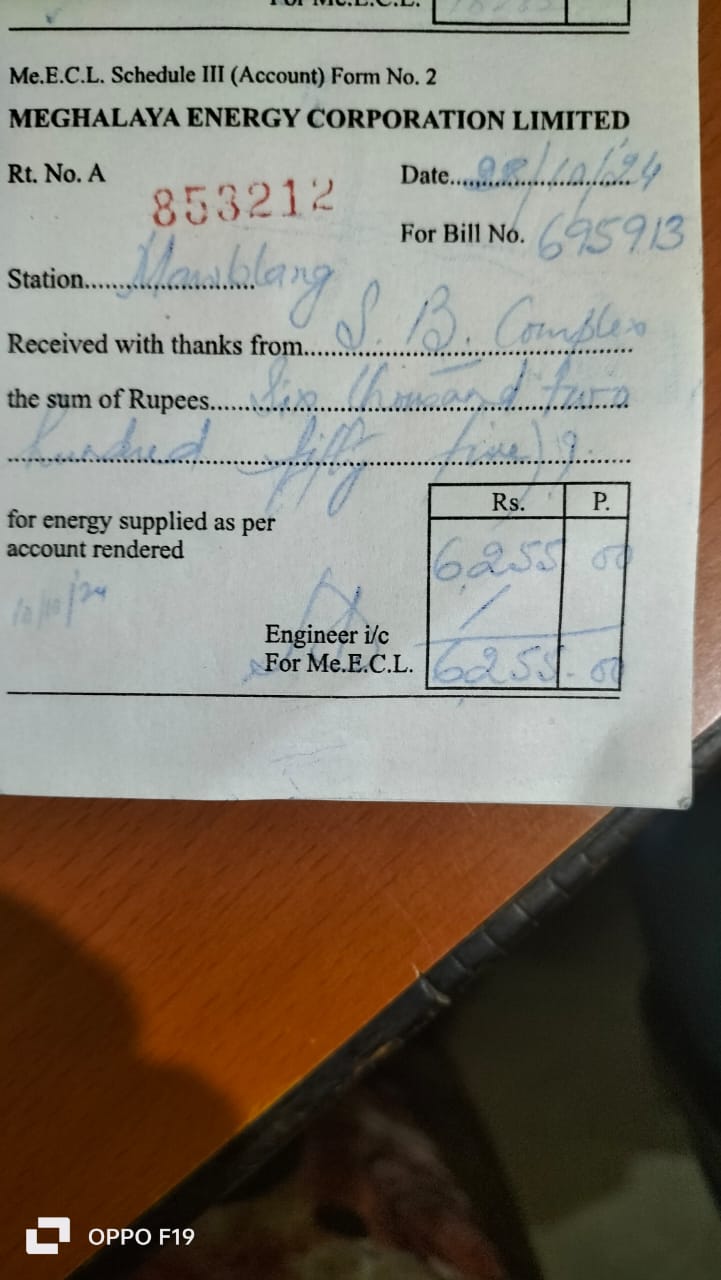 For Me.E.C.L.
Me.E.C.L. Schedule III (Account) Form No. 2
MEGHALAYA ENERGY CORPORATION LIMITED
Rt. No. A 853212 Date..../10/24
For Bill No. 695913
Station.....Mawblang
Received with thanks from...S. B. Complex
the sum of Rupees...Six thousand two
hundred fifty five)
Rs. P.
for energy supplied as per
account rendered
6255 00
10/10/24
Engineer i/c
For Me.E.C.L. 6255.00
OPPO F19